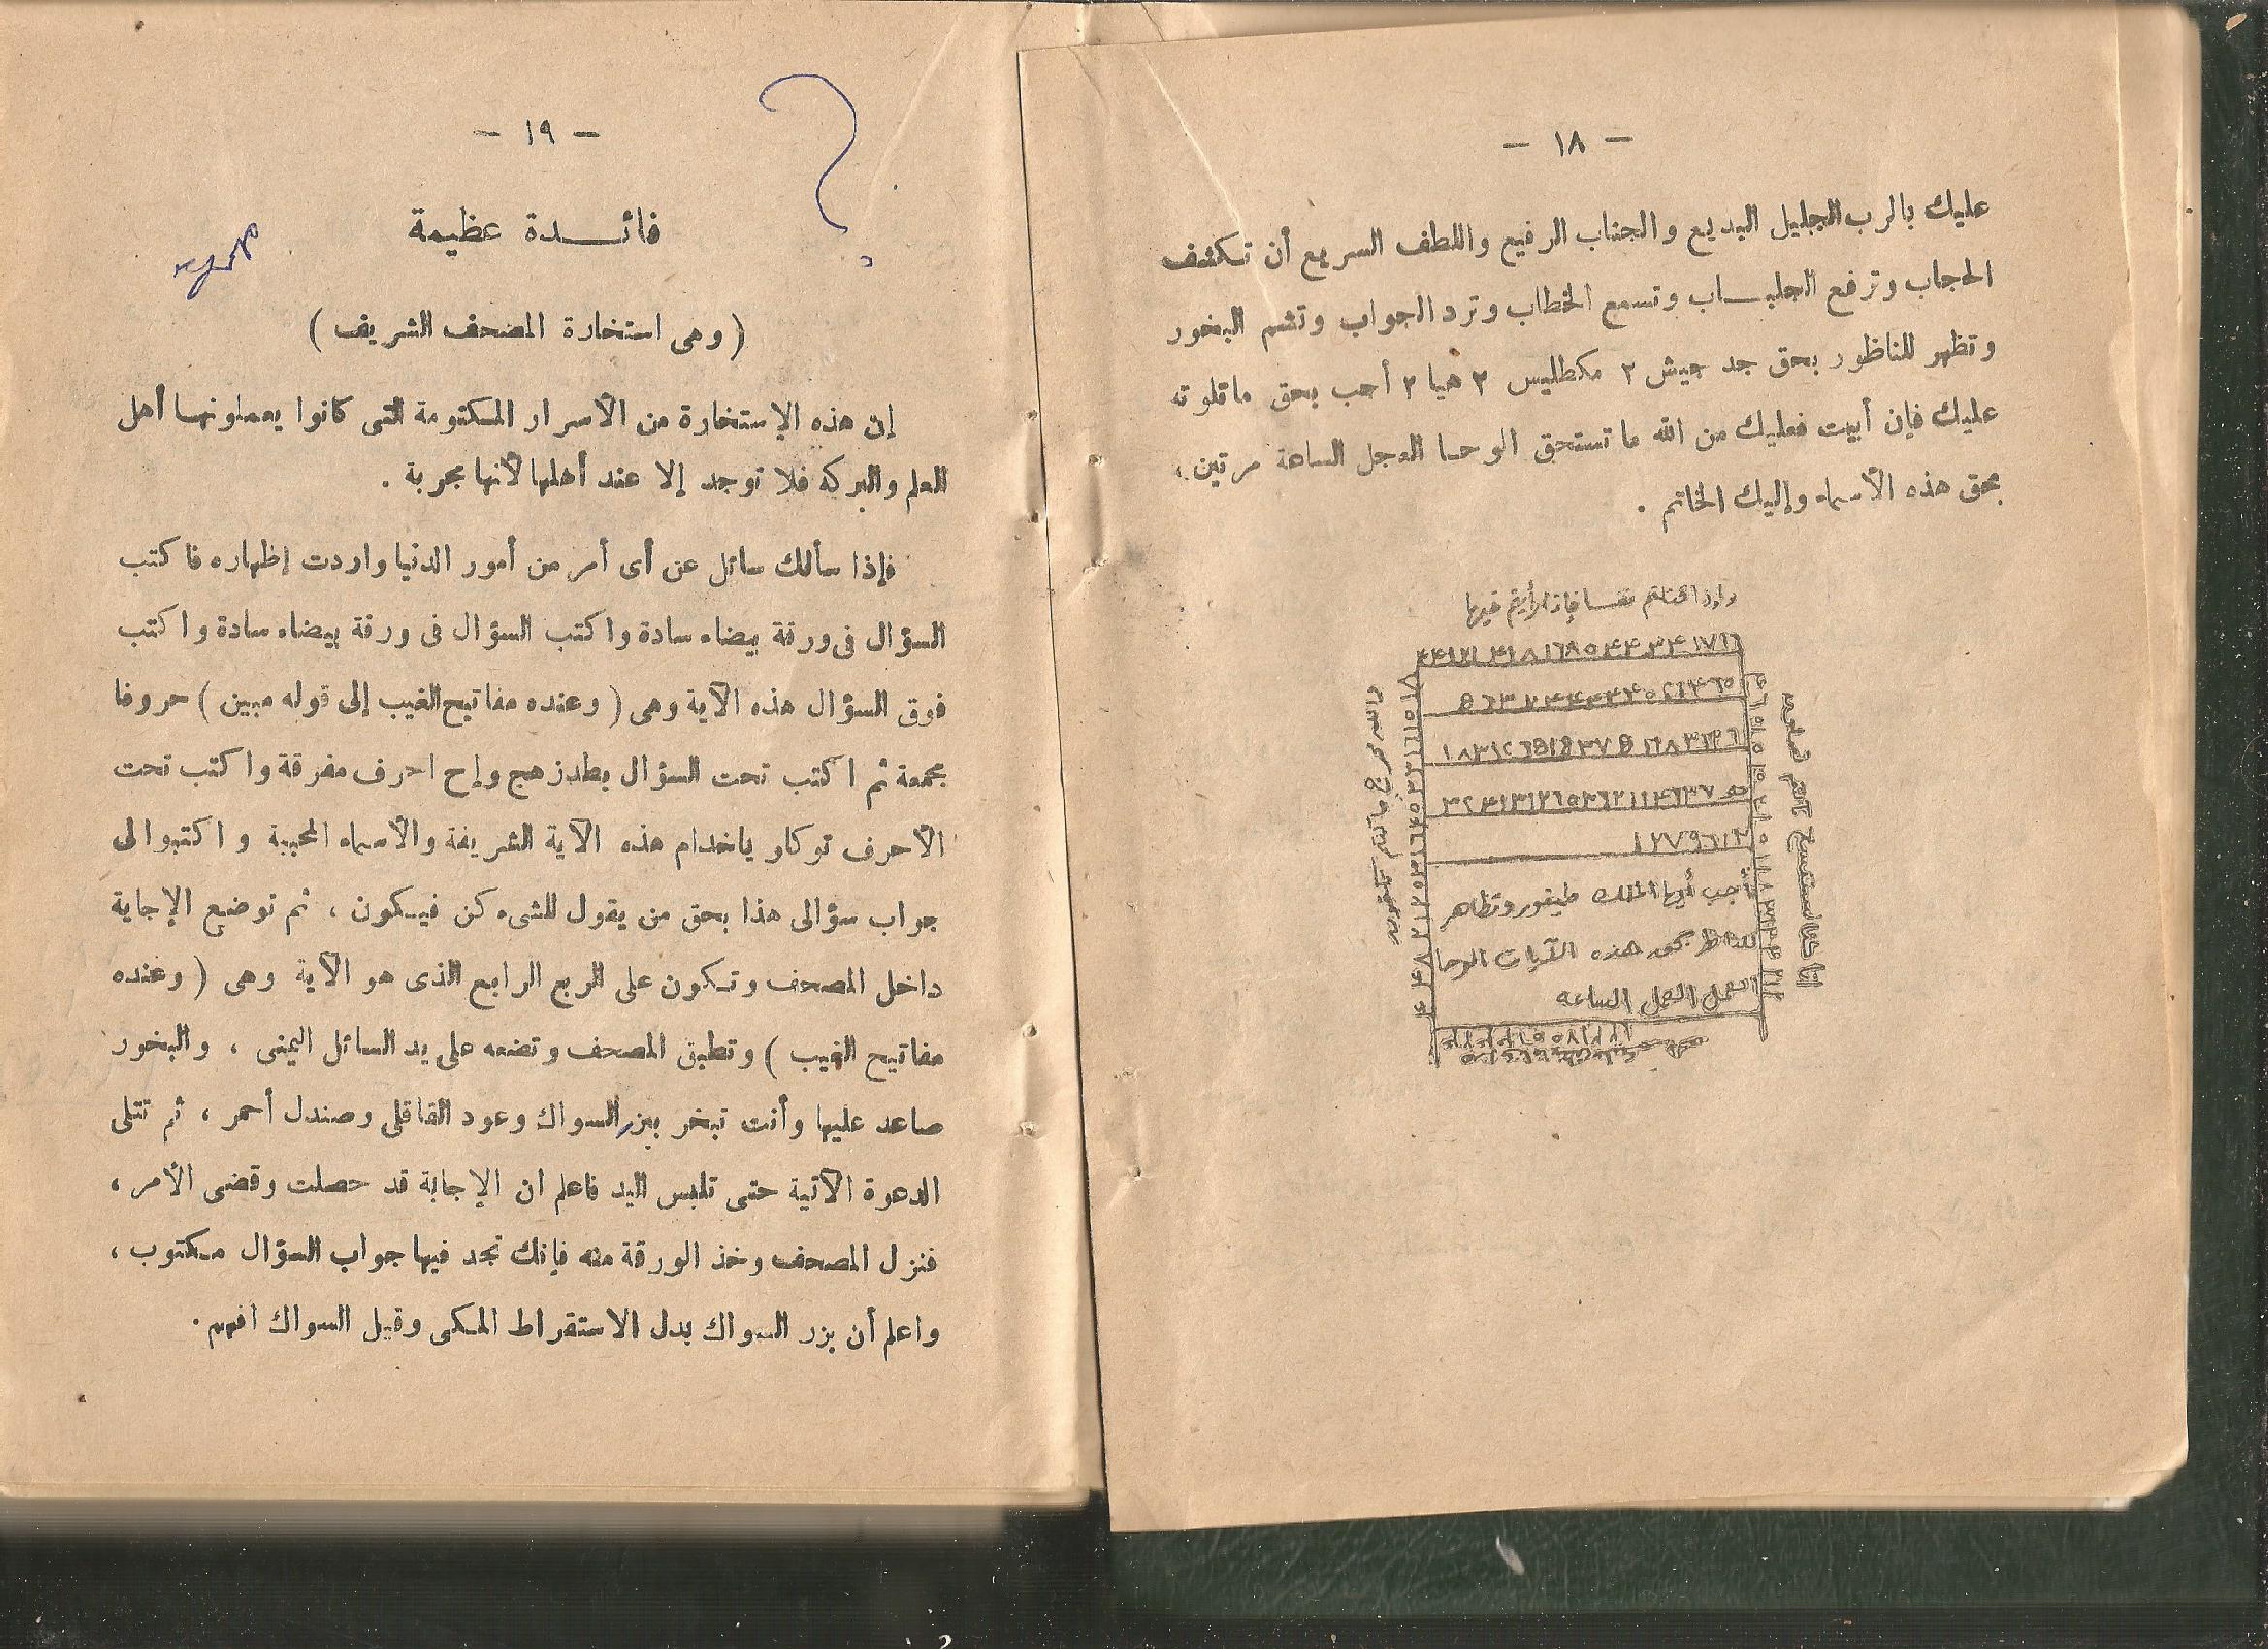 — ١٨ —
عليك بالرب الجليل البديع والجناب الرفيع واللطف السريع أن تكشف
الحجاب وترفع الجلبــاب وتسمع الخطاب وترد الجواب وتشم البخور
وتظهر للناظور بحق جد جيش ٢ مكطليس ٢ هيا ٢ أجب بحق ماتلوته
عليك فإن أبيت فعليك من الله ماتستحق الوحا العجل الساعة مرتين،
بحق هذه الأسماء وإليك الخاتم .
وإذ قتلتم نفسا فادارأتم فيها
والله مخرج ما كنتم تكتمون
أجب أيها الملك طيفور وتظاهر
للناظر بحق هذه الآيات الوحا
العجل العجل الساعة
— ١٩ —
فائـــدة عظيمة
( وهى استخارة المصحف الشريف )
إن هذه الإستخارة من الأسرار المكتومة التى كانوا يعملونهـا أهل
العلم والبركة فلا توجد إلا عند أهلها لأنها مجربة .
فإذا سألك سائل عن أى أمر من أمور الدنيا واردت إظهاره فاكتب
السؤال فى ورقة بيضاء سادة واكتب السؤال فى ورقة بيضاء سادة واكتب
فوق السؤال هذه الآية وهى ( وعنده مفاتيح الغيب إلى قوله مبين ) حروفا
مجمعة ثم اكتب تحت السؤال بطد زهج وإح احرف مفرقة واكتب تحت
الأحرف توكلو ياخدام هذه الآية الشريفة والأسماء المحببة واكتبوا لى
جواب سؤالى هذا بحق من يقول للشىء كن فيـكون ، ثم توضع الإجابة
داخل المصحف وتـكون على الربع الرابع الذى هو الآية وهى ( وعنده
مفاتيح الغيب ) وتطبق المصحف وتضعه على يد السائل اليمنى ، والبخور
صاعد عليها وأنت تبخر ببزر السواك وعود القاقلى وصندل أحمر ، ثم تتلى
الدعوة الآتية حتى تلبس اليد فاعلم ان الإجابة قد حصلت وقضى الأمر ،
فنزل المصحف وخذ الورقة منه فإنك تجد فيها جواب السؤال مـكتوب ،
واعلم أن بزر السواك بدل الاستقراط المـكى وقيل السواك افهم .